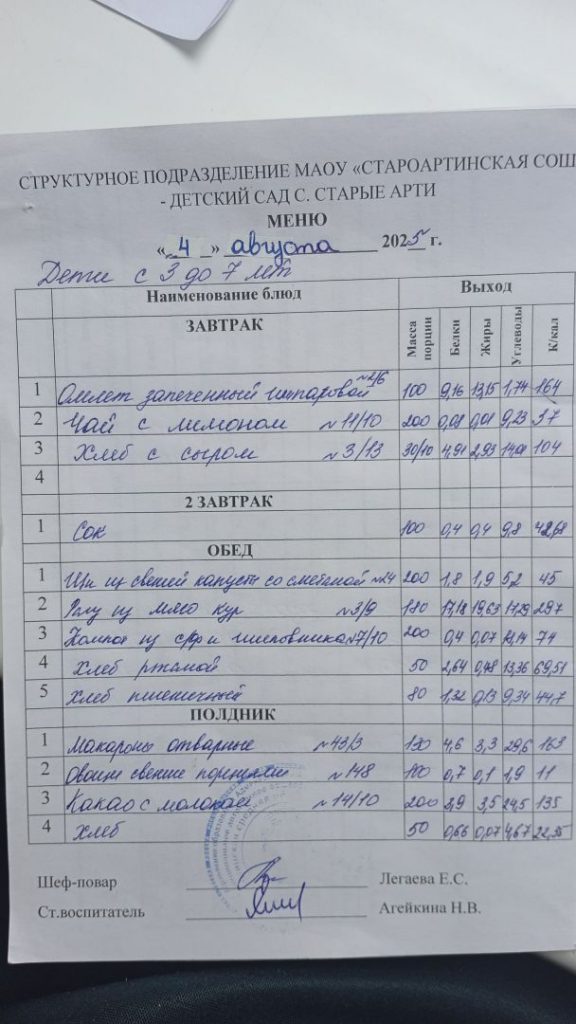 СТРУКТУРНОЕ ПОДРАЗДЕЛЕНИЕ МАОУ «СТАРОАРТИНСКАЯ СОШ
- ДЕТСКИЙ САД С. СТАРЫЕ АРТИ
МЕНЮ
« 4 » августа 2025 г.
Дети с 3 до 7 лет
Наименование блюд Выход
ЗАВТРАК Масса порции Белки Жиры Углеводы К/кал
1 Омлет запеченный 100 9,16 13,15 1,74 164
2 Чай с лимоном №11/10 200 0,08 0,01 9,23 37
3 Хлеб с сыром №3/13 30/10 4,91 2,93 104
4
2 ЗАВТРАК
1 Сок 100 0,4 0,4 9,8 42,68
ОБЕД
1 Щи из свежей капусты со сметаной №24 200 1,8 1,9 5,2 45
2 Рагу из мяса кур №3/9 180 17,18 19,63 17,29 297
3 Компот из с/ф и шиповника №7/10 200 0,4 0,07 74
4 Хлеб ржаной 50 2,64 0,48 13,36 69,51
5 Хлеб пшеничный 80 1,32 0,13 9,34 44,7
ПОЛДНИК
1 Макароны отварные №43/3 4,6 3,3 29,6 163
2 Овощи свежие №148 100 0,7 0,1 1,9 11
3 Какао с молоком №14/10 200 3,9 3,5 24,5 135
4 Хлеб 50 0,66 0,07 4,67 22,35
Шеф-повар Легаева Е.С.
Ст.воспитатель Агейкина Н.В.